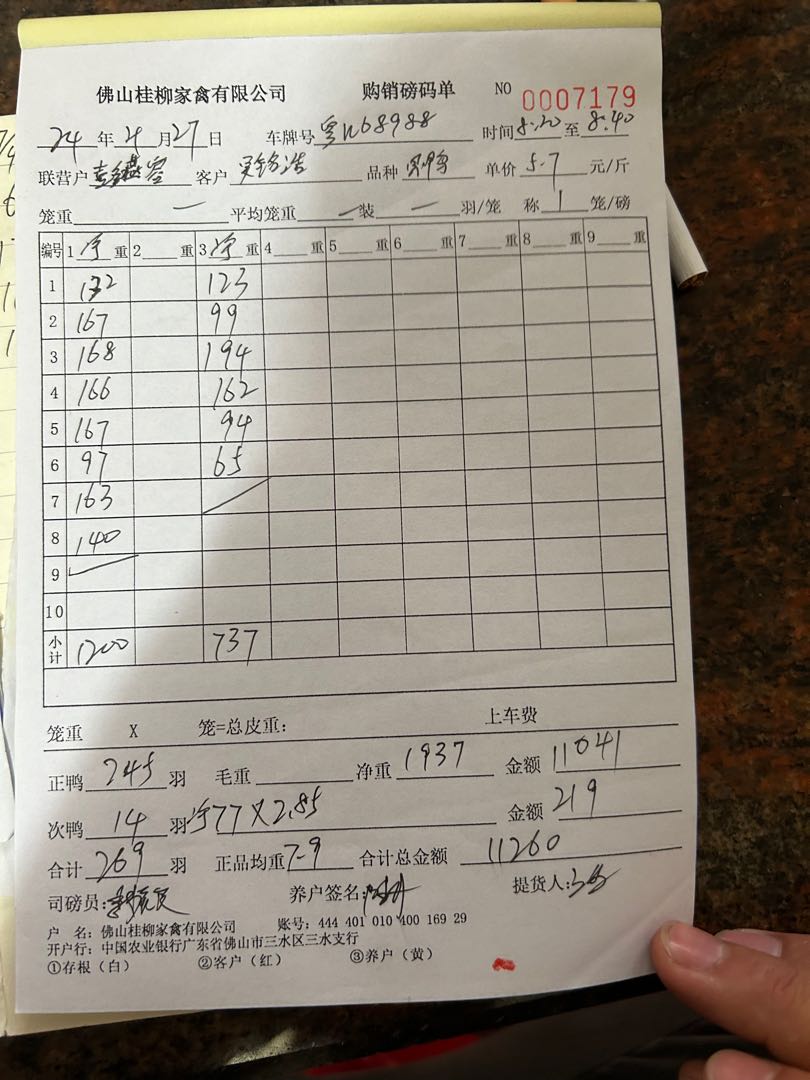 佛山桂柳家禽有限公司 购销磅码单 NO 0007179
24年4月27日 车牌号粤N68988 时间8:20至8:40
联营户 客户 品种 单价5.7元/斤
笼重 一 平均笼重 一 装 一 羽/笼 称 1 笼/磅
编号 1净重 2重 3净重 4重 5重 6重 7重 8重 9重
1 132 123
2 167 99
3 168 194
4 166 162
5 167 94
6 97 65
7 163
8 140
9
10
小计 1200 737
笼重 X 笼=总皮重: 上车费
正鸭245羽 毛重 净重1937 金额11041
次鸭14羽 净77×2.85 金额219
合计269羽 正品均重7-9 合计总金额11260
司磅员: 养户签名: 提货人:
户 名: 佛山桂柳家禽有限公司 账号: 444 401 010 400 169 29
开户行: 中国农业银行广东省佛山市三水区三水支行
①存根(白) ②客户(红) ③养户(黄)